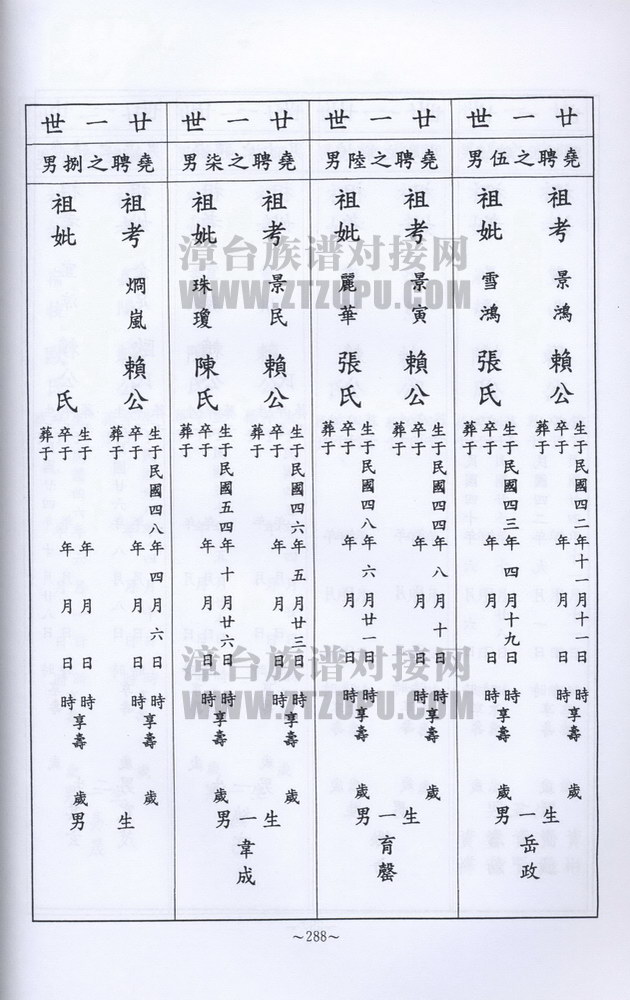 廿一世
堯聘之伍男
祖考 景鴻 賴公
生于民國四二年十一月十一日 時享壽 歲
卒于 年 月 日 時
葬于
祖妣 雪鴻 張氏
生于民國四三年四月十九日 時享壽 歲
卒于 年 月 日 時
葬于
生一男
岳政
廿一世
堯聘之陸男
祖考 景寅 賴公
生于民國四四年八月十日 時享壽 歲
卒于 年 月 日 時
葬于
祖妣 麗華 張氏
生于民國四八年六月廿一日 時享壽 歲
卒于 年 月 日 時
葬于
生一男
育罄
廿一世
堯聘之柒男
祖考 景民 賴公
生于民國四六年五月廿三日 時享壽 歲
卒于 年 月 日 時
葬于
祖妣 珠瓊 陳氏
生于民國五四年十月廿六日 時享壽 歲
卒于 年 月 日 時
葬于
生一男
韋成
廿一世
堯聘之捌男
祖考 烱嵐 賴公
生于民國四八年四月六日 時享壽 歲
卒于 年 月 日 時
葬于
祖妣 氏
生于 年 月 日 時享壽 歲
卒于 年 月 日 時
葬于
生 男
~288~
漳台族谱对接网
WWW.ZTZUPU.COM
漳台族谱对接网
WWW.ZTZUPU.COM